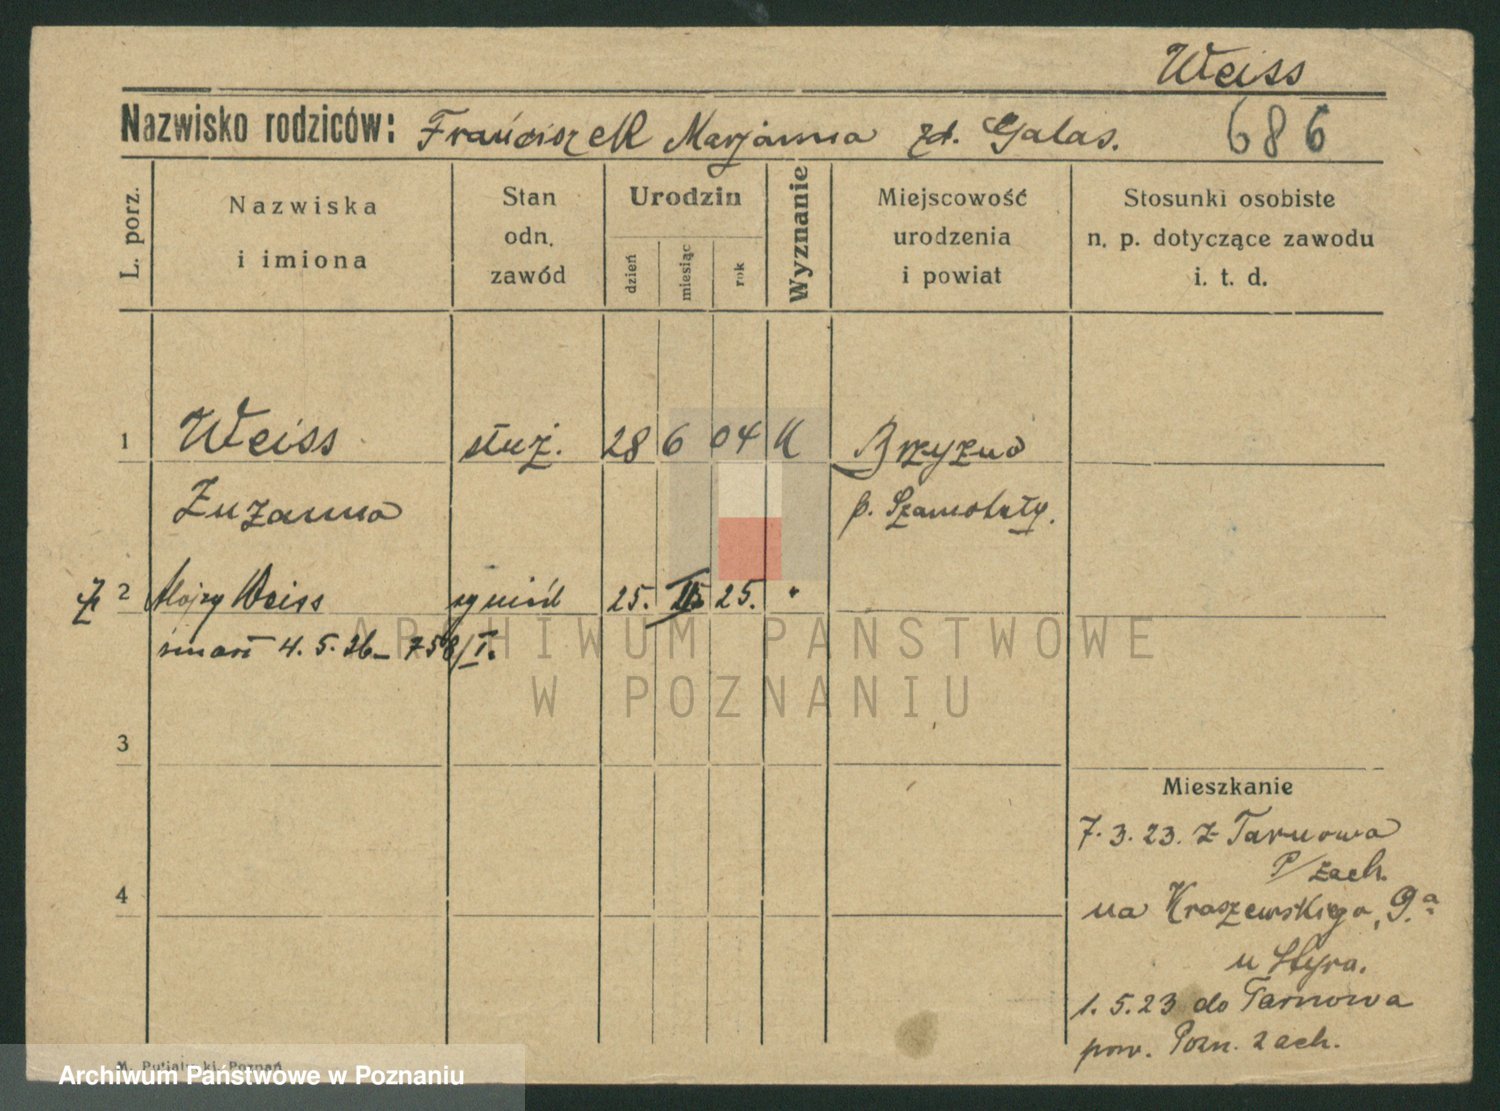 Weiss
Nazwisko rodziców: Franciszek Marjanna zd. Galas.
686
L. porz.
Nazwiska
i imiona
Stan
odn.
zawód
Urodzin
dzień
miesiąc
rok
Wyznanie
Miejscowość
urodzenia
i powiat
Stosunki osobiste
n. p. dotyczące zawodu
i. t. d.
1 Weiss służ. 28 6 04 K Brzyzno
Zuzanna p. Szamotuły.
2 Alojzy Weiss 25. 25. "
zmarł 4. 5. 26 – 758/I.
ARCHIWUM PAŃSTWOWE
W POZNANIU
3
Mieszkanie
7. 3. 23. z Tarnowa
P/zach.
4
na Kraszewskiego, 9.a
u Styra.
1. 5. 23 do Tarnowa
pow. Pozn. zach.
M. Putiatycki, Poznań
Archiwum Państwowe w Poznaniu